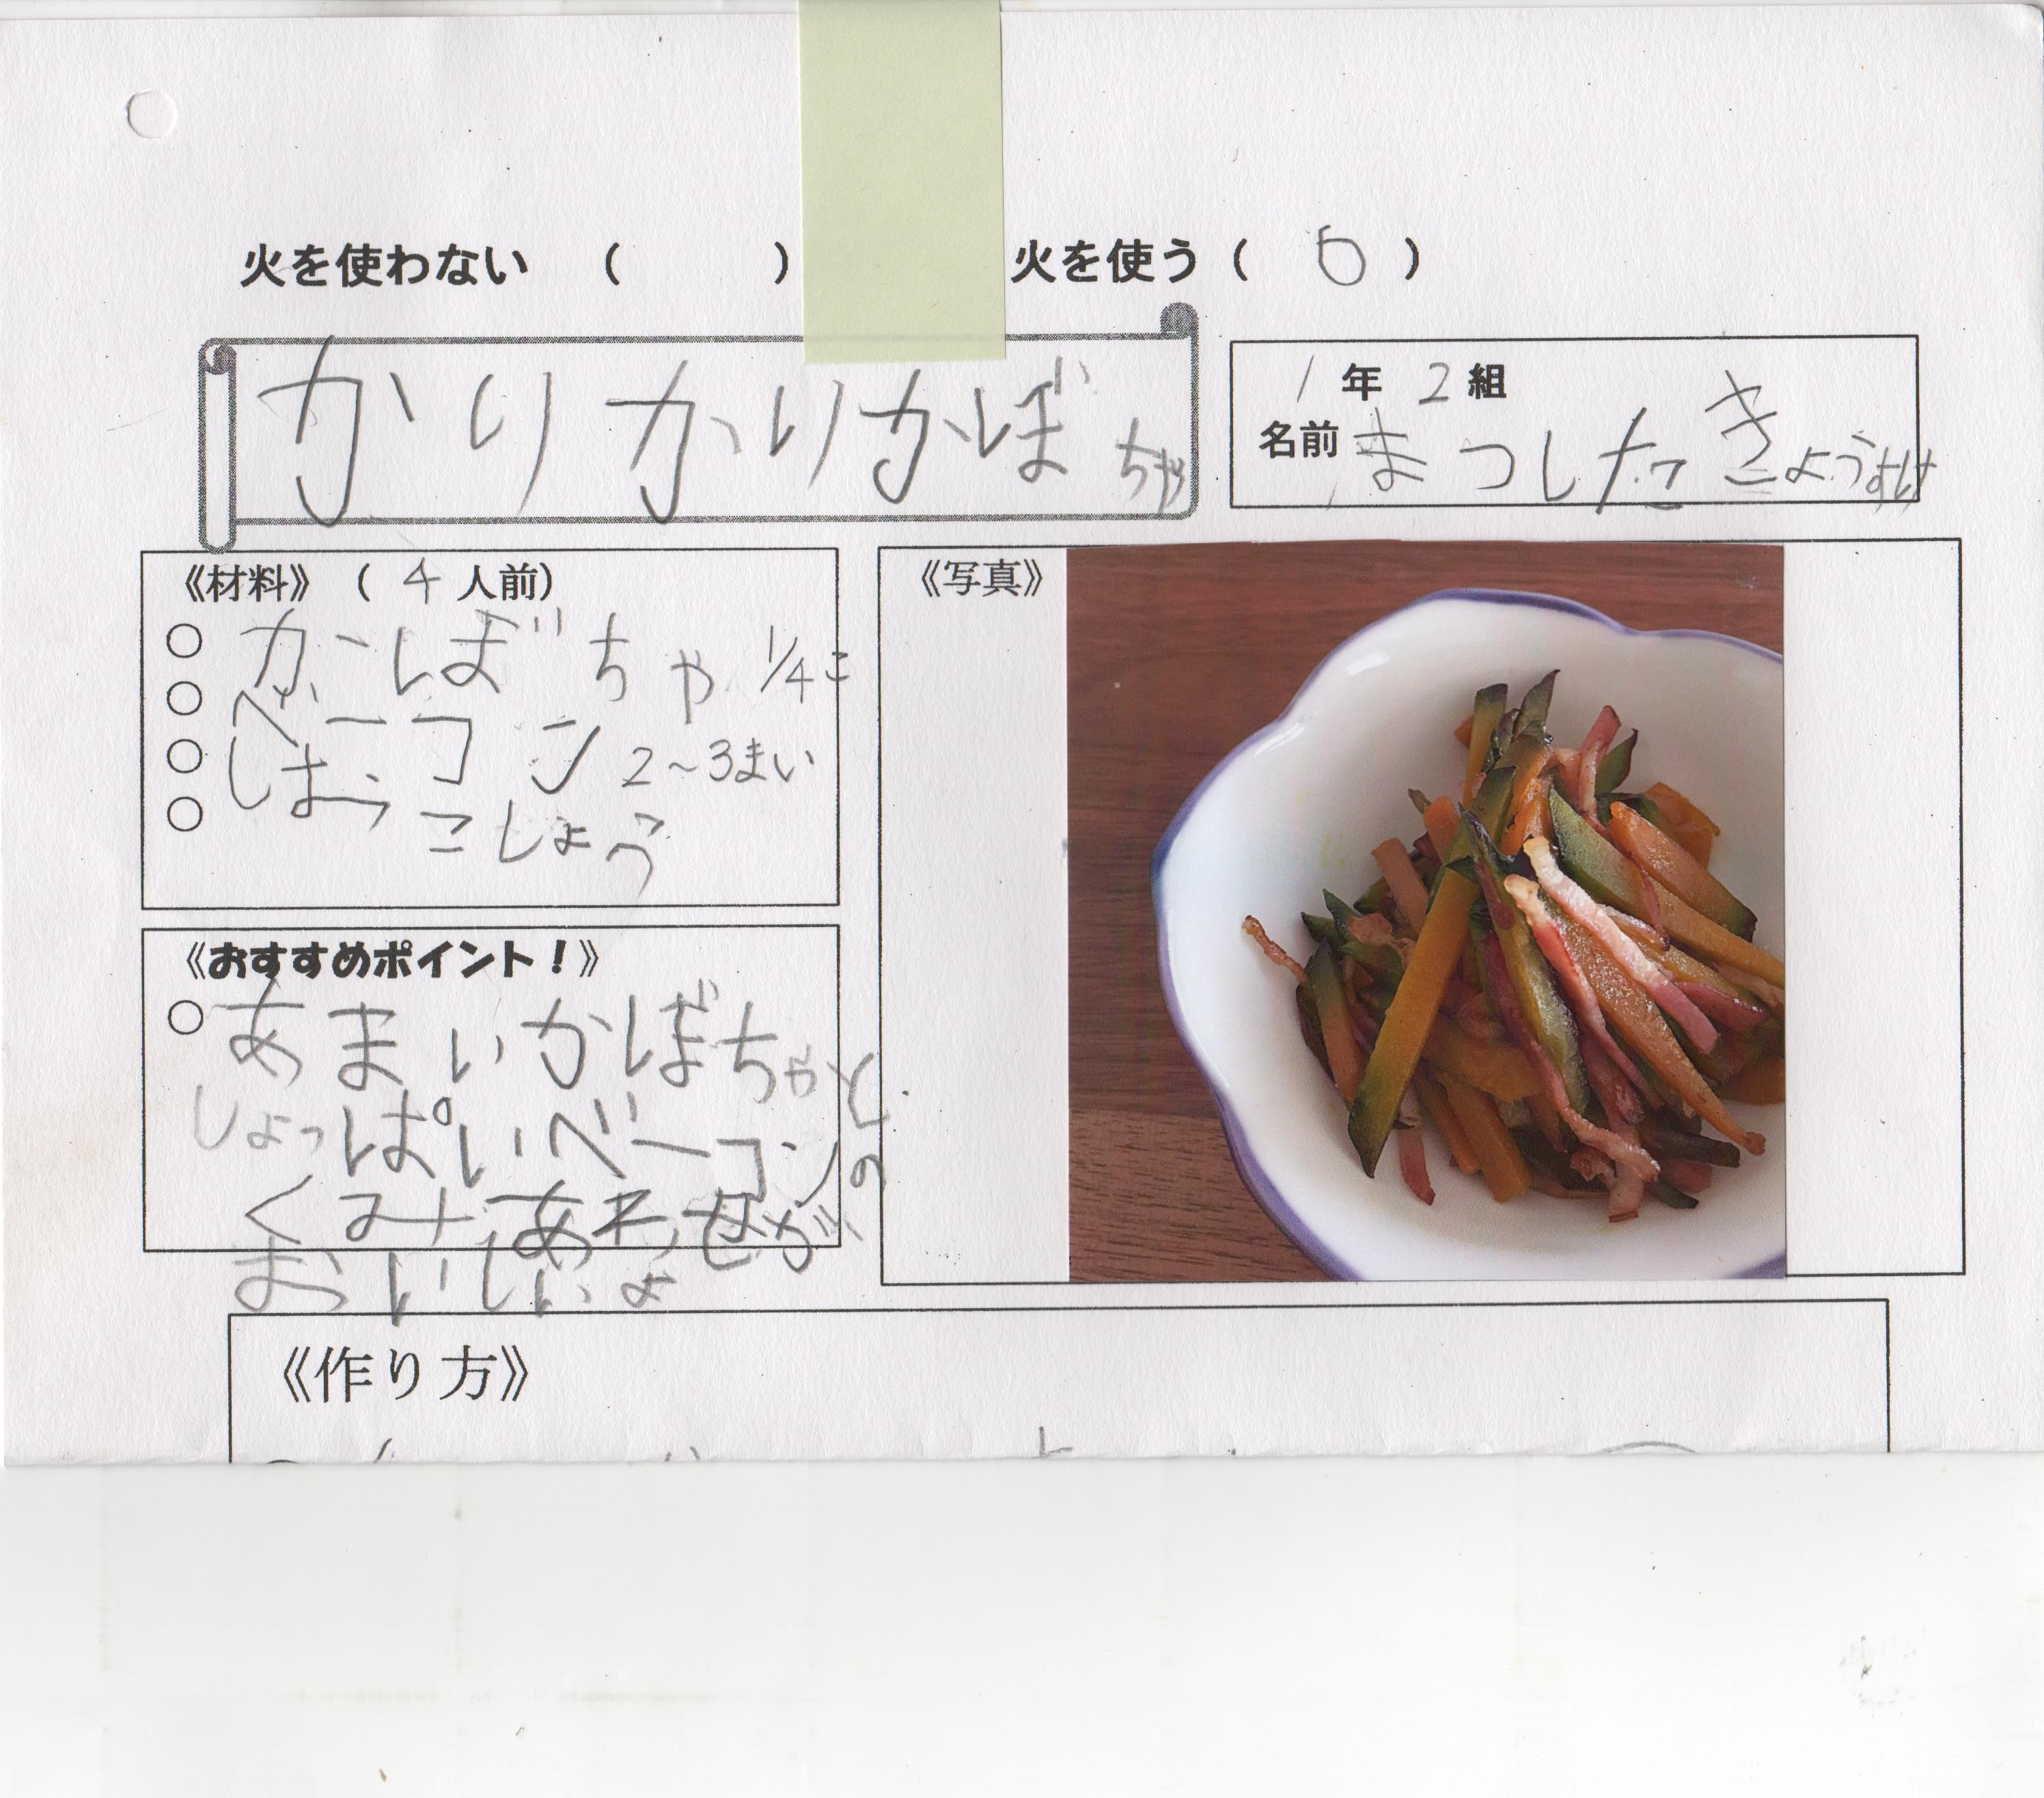 火を使わない （ ） 火を使う（ ○ ）
かりかりかぼちゃ
1年 2組
名前 まつした きょうすけ
《材料》（ 4 人前）
○ かぼちゃ 1/4こ
○ ベーコン 2～3まい
○ しお
○ こしょう
《おすすめポイント！》
○ あまいかぼちゃと
しょっぱいベーコンの
くみあわせが
おいしいよ
《写真》
《作り方》